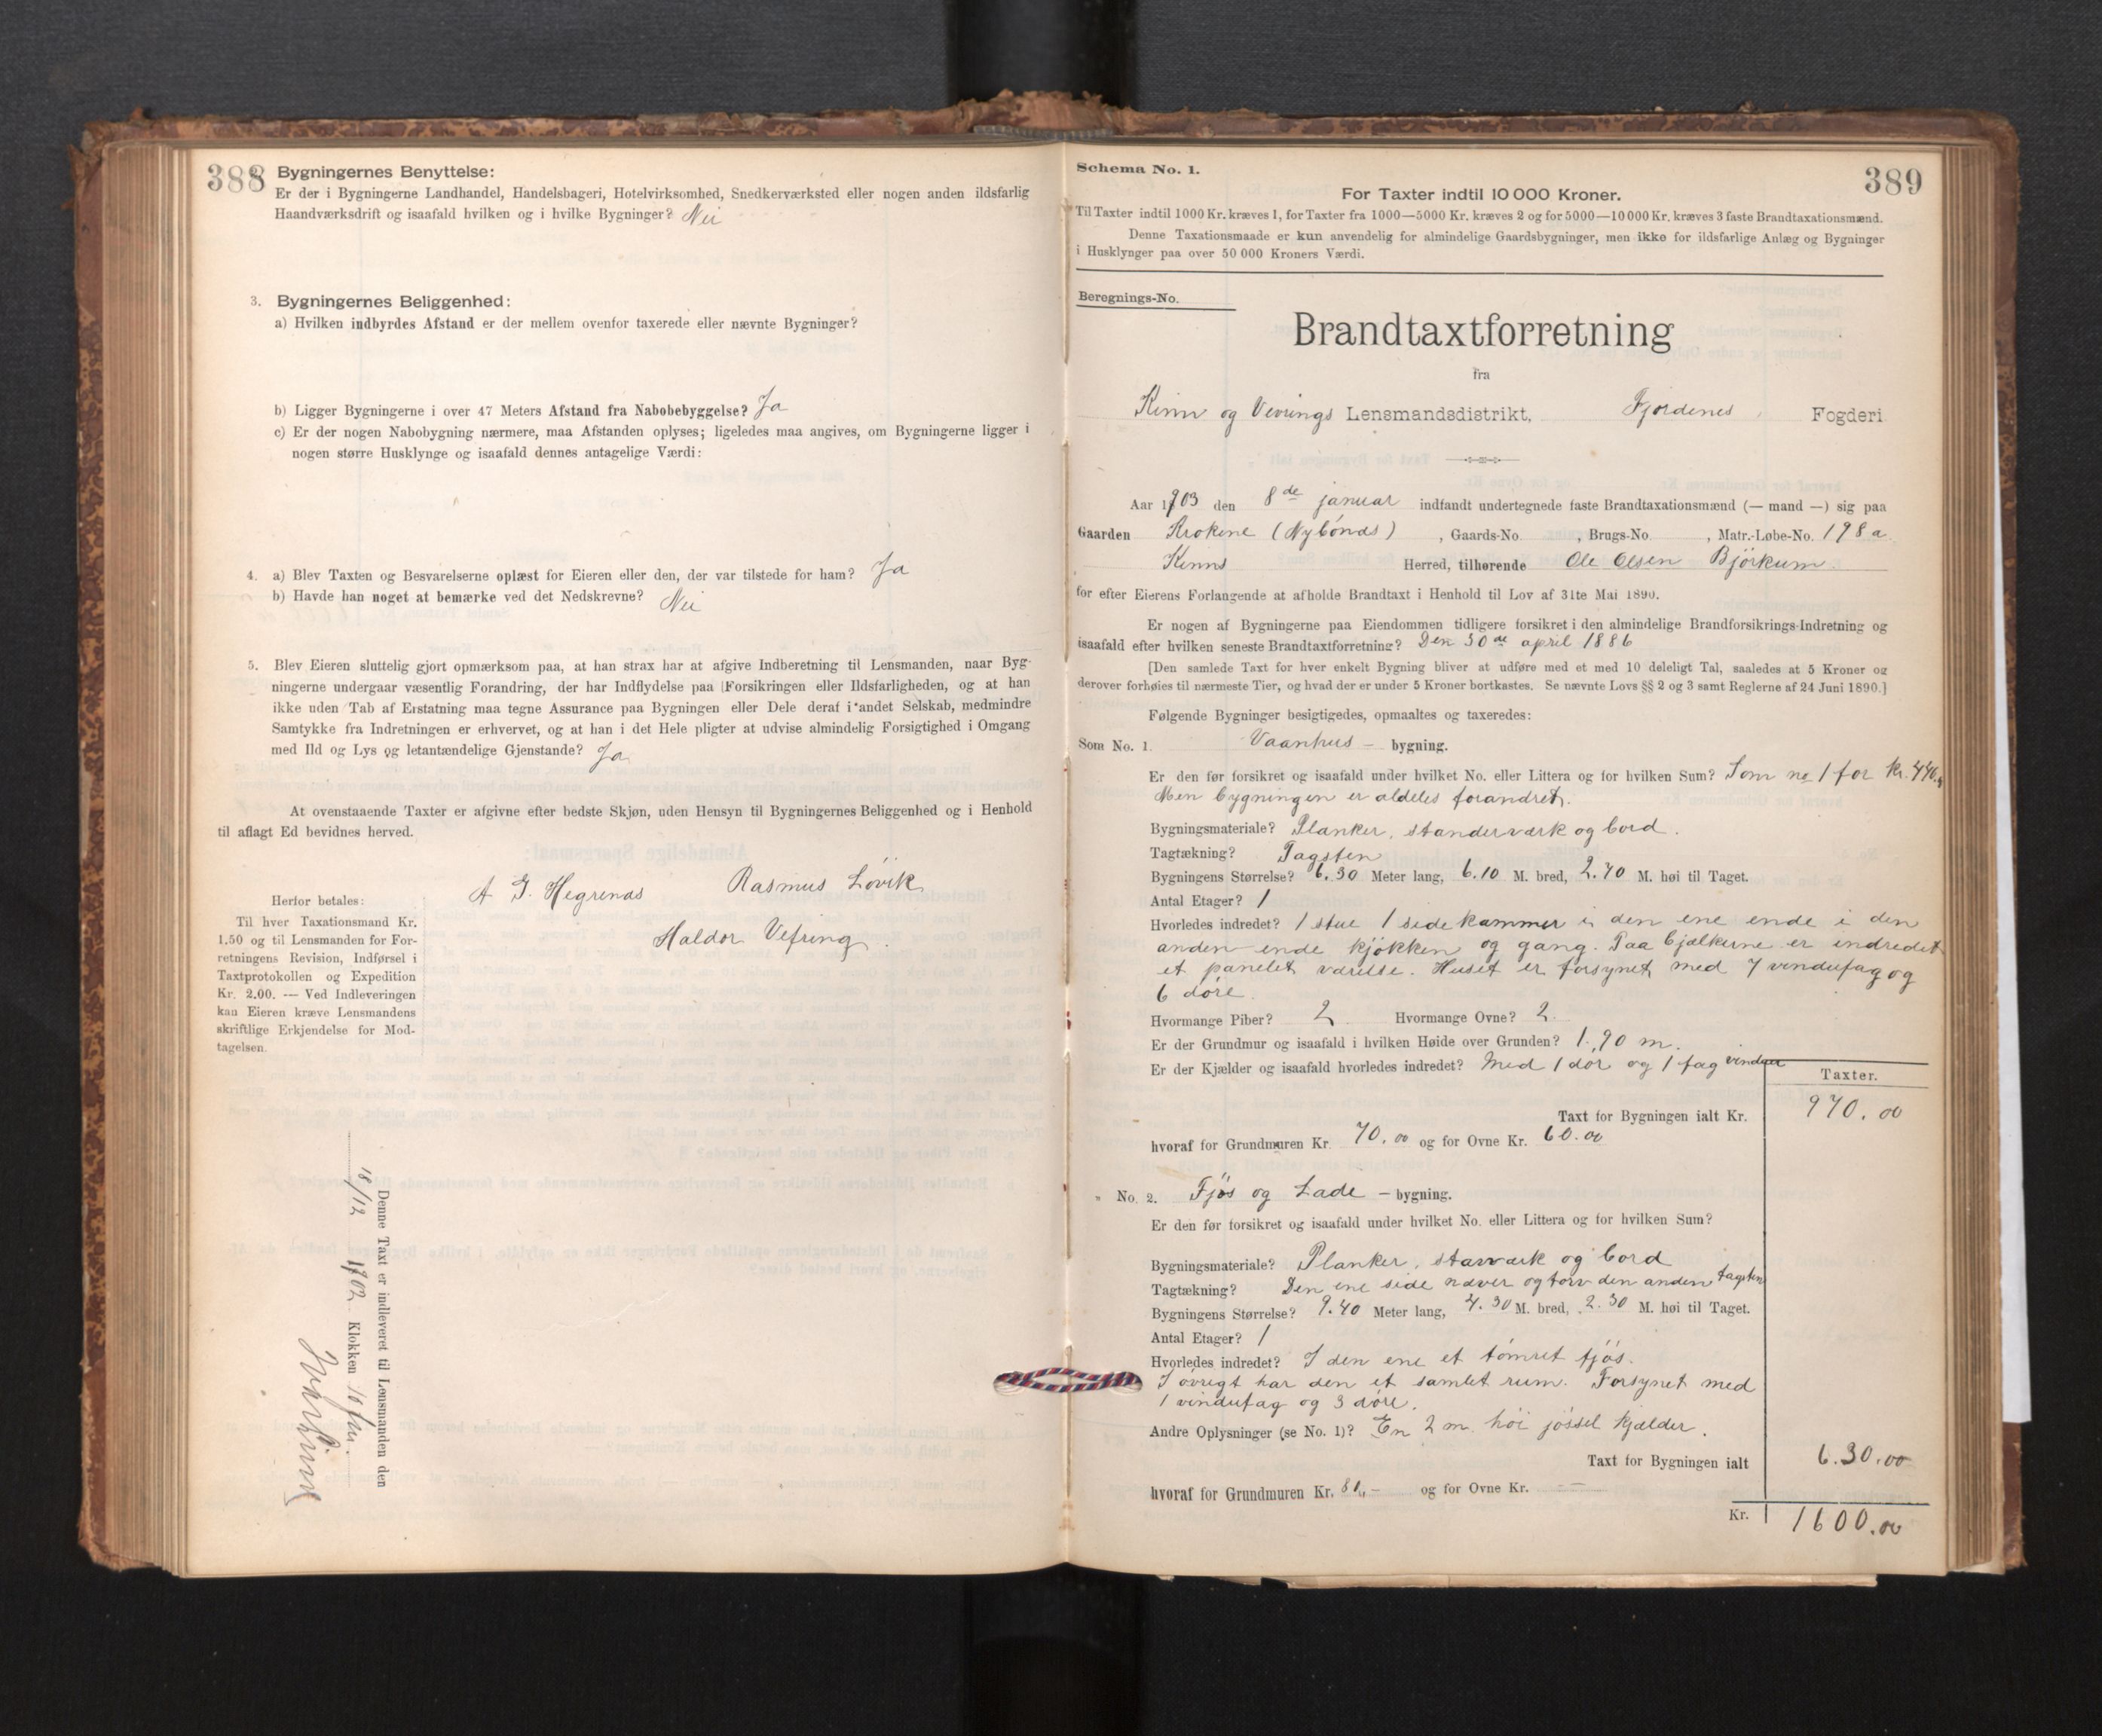 388
Bygningernes Benyttelse:
Er der i Bygningerne Landhandel, Handelsbageri, Hotelvirksomhed, Snedkerværksted eller nogen anden ildsfarlig
Haandværksdrift og isaafald hvilken og i hvilke Bygninger? Nei
3. Bygningernes Beliggenhed:
a) Hvilken indbyrdes Afstand er der mellem ovenfor taxerede eller nævnte Bygninger?
b) Ligger Bygningerne i over 47 Meters Afstand fra Nabobebyggelse? Ja
c) Er der nogen Nabobygning nærmere, maa Afstanden oplyses; ligeledes maa angives, om Bygningerne ligger i
nogen større Husklynge og isaafald dennes antagelige Værdi:
4. a) Blev Taxten og Besvarelserne oplæst for Eieren eller den, der var tilstede for ham? Ja
b) Havde han noget at bemærke ved det Nedskrevne? Nei
5. Blev Eieren sluttelig gjort opmærksom paa, at han strax har at afgive Indberetning til Lensmanden, naar Byg-
ningerne undergaar væsentlig Forandring, der har Indflydelse paa Forsikringen eller Ildsfarligheden, og at han
ikke uden Tab af Erstatning maa tegne Assurance paa Bygningen eller Dele deraf i andet Selskab, medmindre
Samtykke fra Indretningen er erhvervet, og at han i det Hele pligter at udvise almindelig Forsigtighed i Omgang
med Ild og Lys og letantændelige Gjenstande? Ja
At ovenstaaende Taxter er afgivne efter bedste Skjøn, uden Hensyn til Bygningernes Beliggenhed og i Henhold
til aflagt Ed bevidnes herved.
A J. Hegrenæs Rasmus Løvik
Haldor Vefring
Herfor betales:
Til hver Taxationsmand Kr.
1.50 og til Lensmanden for For-
retningens Revision, Indførsel i
Taxtprotokollen og Expedition
Kr. 2.00. — Ved Indleveringen
kan Eieren kræve Lensmandens
skriftlige Erkjendelse for Mod-
tagelsen.
Denne Taxt er indleveret til Lensmanden den
18/12 1902 Klokken 10 fm.
389
Schema No. 1.
For Taxter indtil 10 000 Kroner.
Til Taxter indtil 1000 Kr. kræves 1, for Taxter fra 1000—5000 Kr. kræves 2 og for 5000—10 000 Kr. kræves 3 faste Brandtaxationsmænd.
Denne Taxationsmaade er kun anvendelig for almindelige Gaardsbygninger, men ikke for ildsfarlige Anlæg og Bygninger
i Husklynger paa over 50 000 Kroners Værdi.
Beregnings-No.
Brandtaxtforretning
fra
Kinn og Vevrings Lensmandsdistrikt, Fjordenes Fogderi
Aar 1903 den 8de januar indfandt undertegnede faste Brandtaxationsmænd (— mand —) sig paa
Gaarden Krokene (Nybönds), Gaards-No. , Brugs-No. , Matr.-Løbe-No. 198 a
Kinns Herred, tilhørende Ole Olsen Björkum
for efter Eierens Forlangende at afholde Brandtaxt i Henhold til Lov af 31te Mai 1890.
Er nogen af Bygningerne paa Eiendommen tidligere forsikret i den almindelige Brandforsikrings-Indretning og
isaafald efter hvilken seneste Brandtaxtforretning? Den 30de april 1886
[Den samlede Taxt for hver enkelt Bygning bliver at udføre med et med 10 deleligt Tal, saaledes at 5 Kroner og
derover forhøies til nærmeste Tier, og hvad der er under 5 Kroner bortkastes. Se nævnte Lovs §§ 2 og 3 samt Reglerne af 24 Juni 1890.]
Følgende Bygninger besigtigedes, opmaaltes og taxeredes:
Som No. 1. Vaanhus – bygning.
Er den før forsikret og isaafald under hvilket No. eller Littera og for hvilken Sum? Som no 1 for Kr. 440.
Men bygningen er aldeles forandret.
Bygningsmateriale? Planker, standerværk og bord.
Tagtækning? Tagsten
Bygningens Størrelse? 6.30 Meter lang, 6.10 M. bred, 2.70 M. høi til Taget.
Antal Etager? 1
Hvorledes indredet? 1 stue 1 sidekammer i den ene ende i den
anden ende kjøkken og gang. Paa bjælkerne er indredet
et panelet værelse. Huset er forsynet med 7 vindufag og
6 døre.
Hvormange Piber? 2 Hvormange Ovne? 2.
Er der Grundmur og isaafald i hvilken Høide over Grunden? 1.90 m.
Er der Kjælder og isaafald hvorledes indredet? Med 1 dör og 1 fag vinduer
Taxter.
Taxt for Bygningen ialt Kr. 970.00
hvoraf for Grundmuren Kr. 70.00 og for Ovne Kr. 60.00
" No. 2. Fjös og Lade – bygning.
Er den før forsikret og isaafald under hvilket No. eller Littera og for hvilken Sum?
Bygningsmateriale? Planker, stavværk og bord
Tagtækning? Den ene side næver og torv den anden tagsten
Bygningens Størrelse? 9.40 Meter lang, 4.30 M. bred, 2.30 M. høi til Taget.
Antal Etager? 1
Hvorledes indredet? I den ene et tömret fjös.
I övrigt har den et samlet rum. Forsynet med
1 vindufag og 3 döre.
Andre Oplysninger (se No. 1)? En 2 m. höi jössel kjælder.
Taxt for Bygningen ialt 630.00
hvoraf for Grundmuren Kr. 80,- og for Ovne Kr. – –
Kr. 1600.00